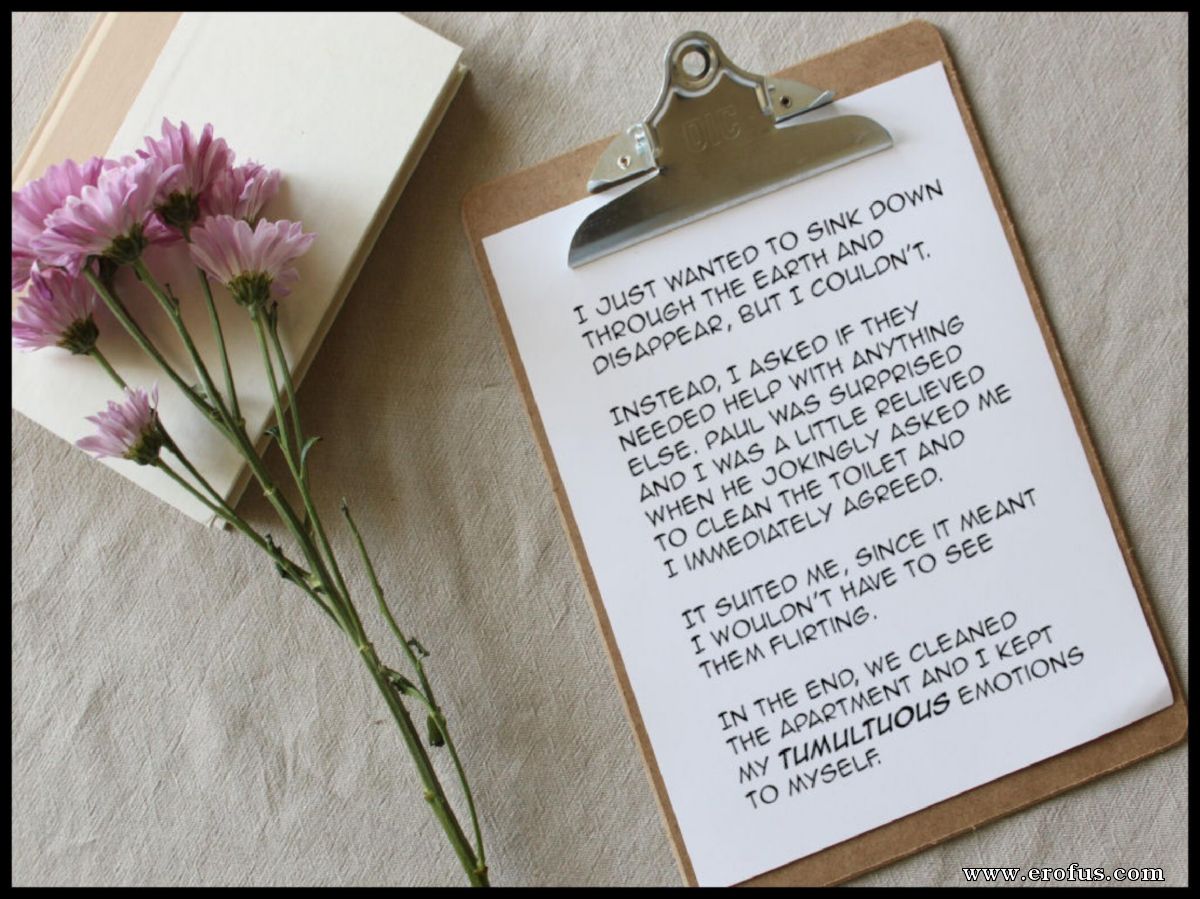 OIC
I JUST WANTED TO SINK DOWN
THROUGH THE EARTH AND
DISAPPEAR, BUT I COULDN'T.
INSTEAD, I ASKED IF THEY
NEEDED HELP WITH ANYTHING
ELSE. PAUL WAS SURPRISED
AND I WAS A LITTLE RELIEVED
WHEN HE JOKINGLY ASKED ME
TO CLEAN THE TOILET AND
I IMMEDIATELY AGREED.
IT SUITED ME, SINCE IT MEANT
I WOULDN'T HAVE TO SEE
THEM FLIRTING.
IN THE END, WE CLEANED
THE APARTMENT AND I KEPT
MY TUMULTUOUS EMOTIONS
TO MYSELF.
www.erofus.com